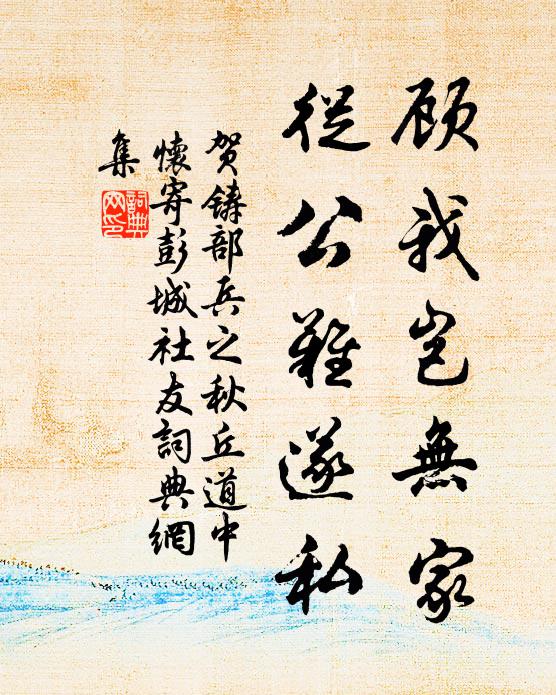 顾我岂無家
從公難遂私
贺鑄部兵之秋丘道中
懷寄彭城社友詞典網
集
詞典
网印